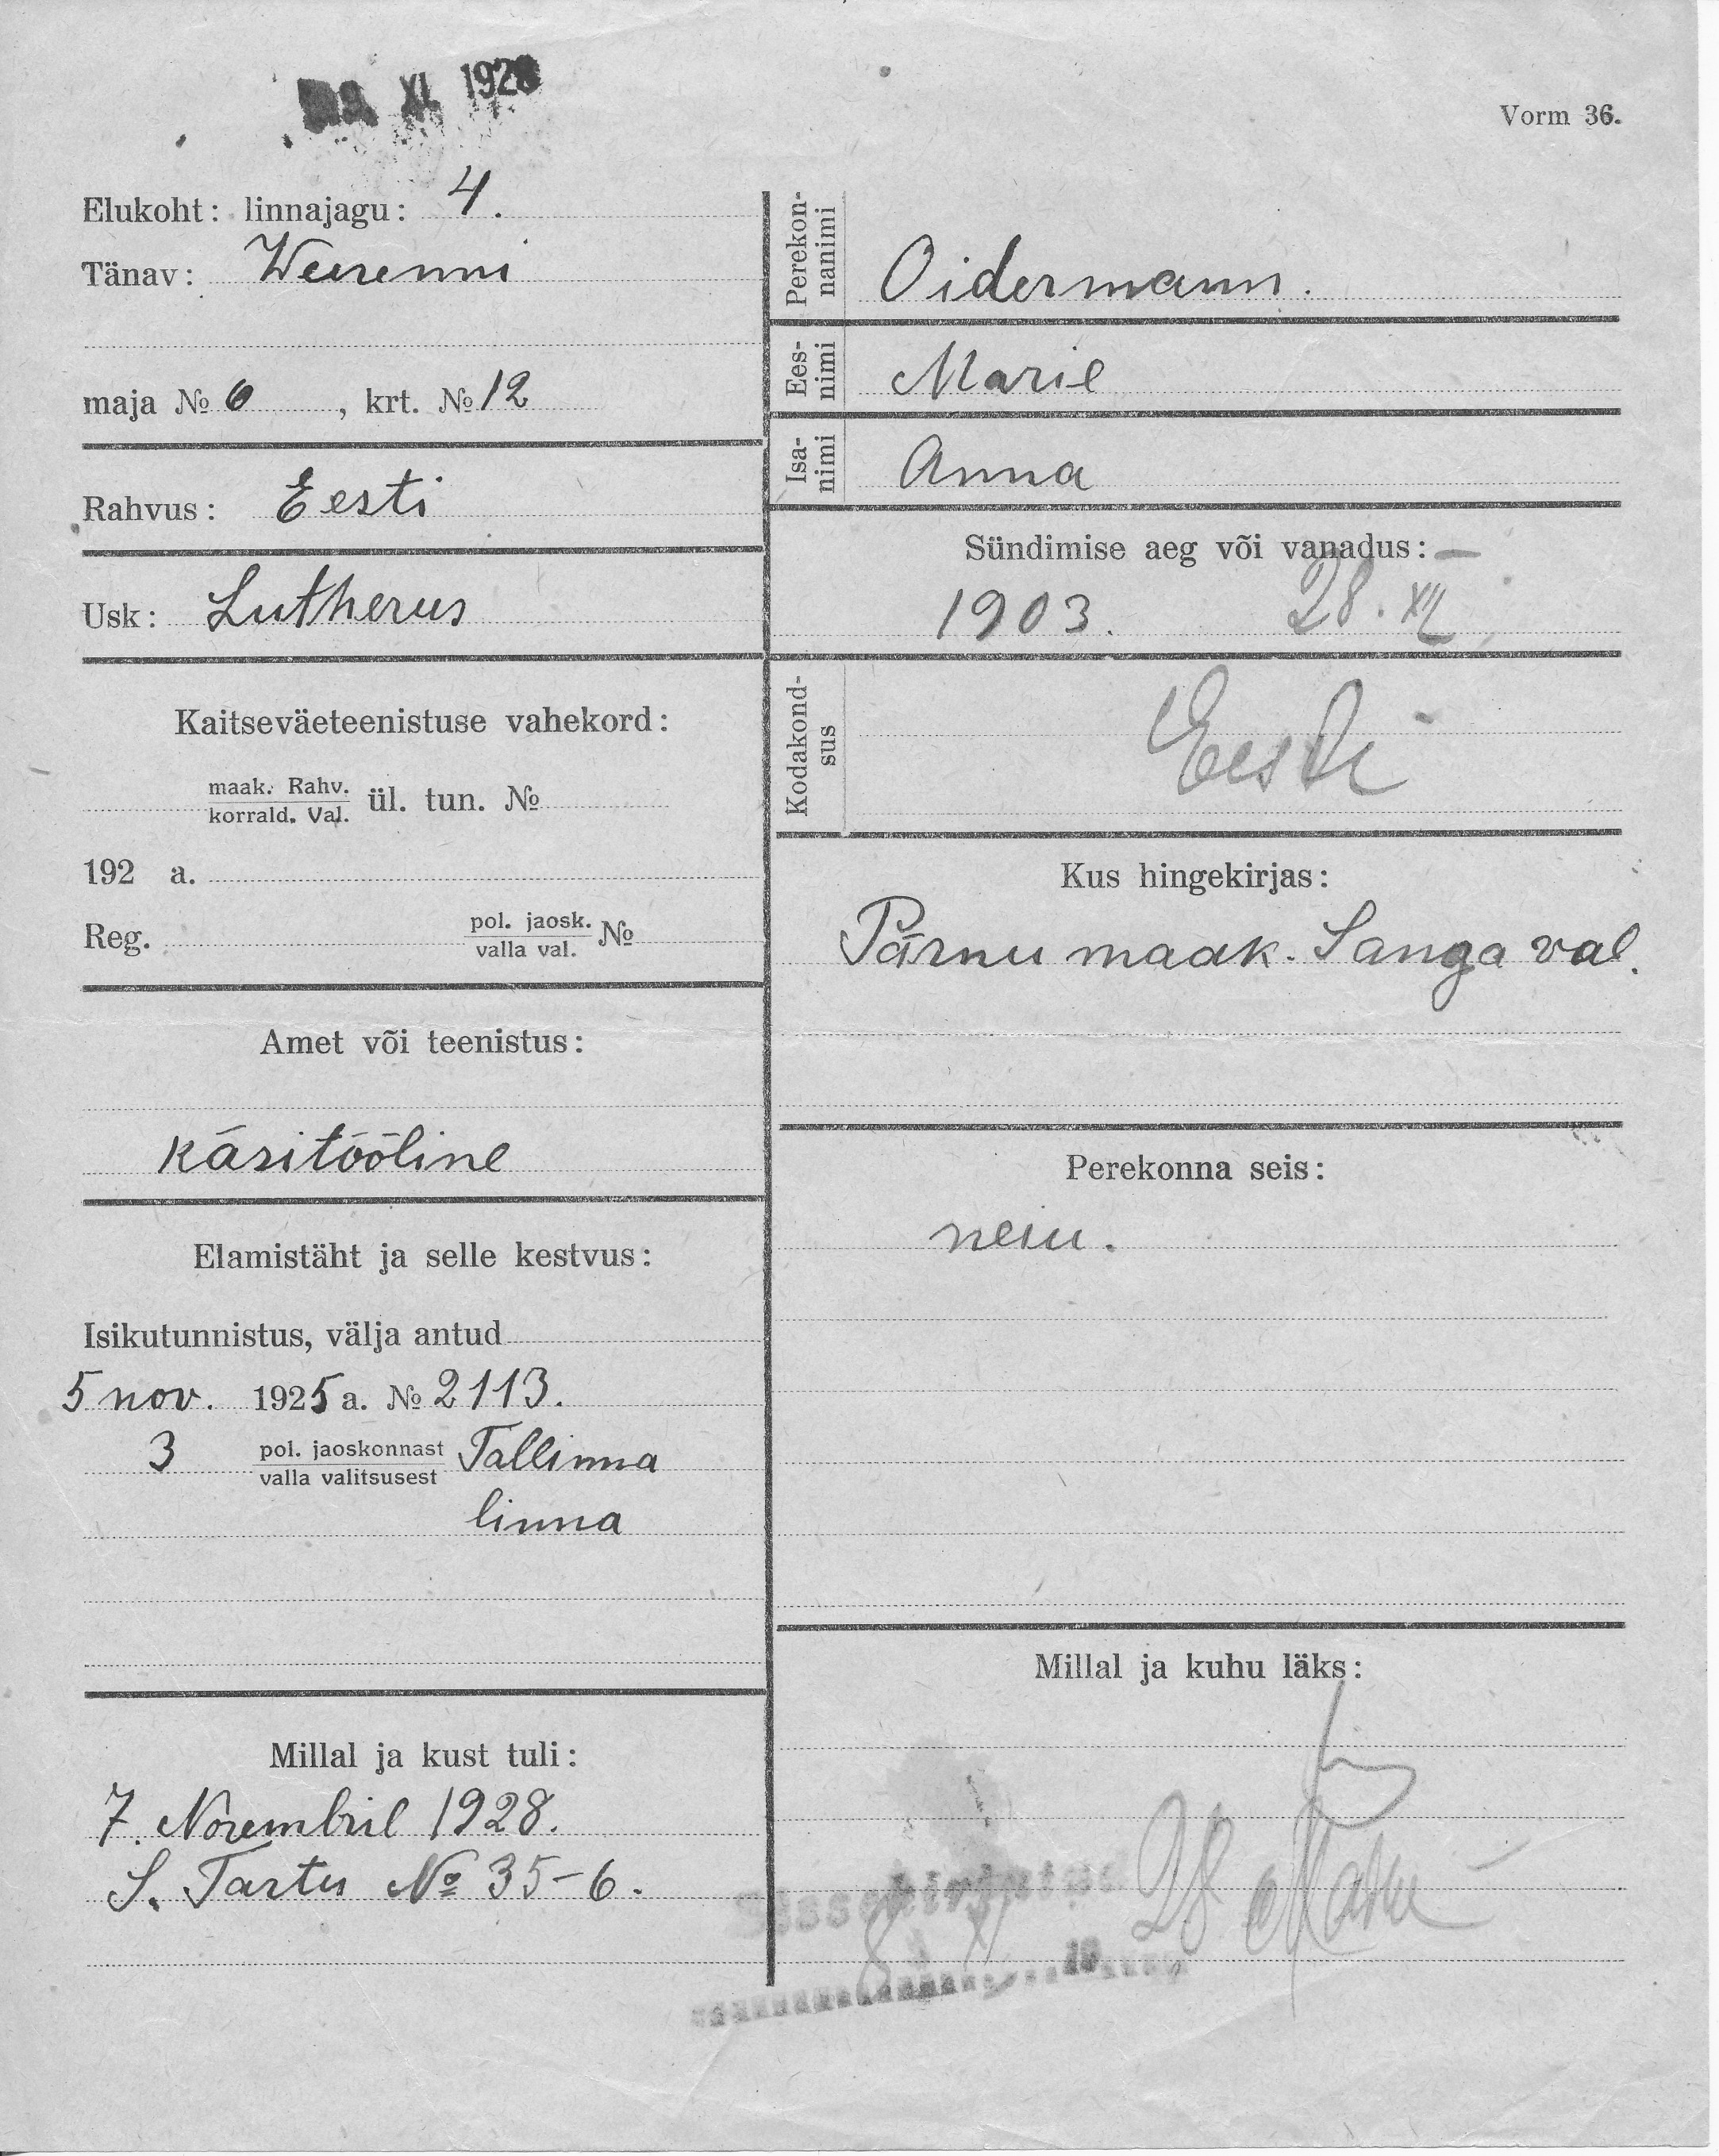 XI. 1928
Vorm 36.
Elukoht: linnajagu: 4.
Tänav: Weerenni
maja № 6 , krt. № 12
Rahvus: Eesti
Usk: Lutherus
Kaitseväeteenistuse vahekord:
maak. Rahv.
korrald. Val. ül. tun. №
192 a.
Reg. pol. jaosk.
valla val. №
Amet või teenistus:
käsitööline
Elamistäht ja selle kestvus:
Isikutunnistus, välja antud
5 nov. 1925 a. № 2113.
3 pol. jaoskonnast
valla valitsusest Tallinna
linna
Millal ja kust tuli:
7. Novembril 1928.
S. Tartu № 35-6.
Perekon-
nanimi Oidermann.
Ees-
nimi Marie
Isa-
nimi Anna
Sündimise aeg või vanadus:
1903. 28. XII
Kodakond-
sus Eesti
Kus hingekirjas:
Pärnu maak. Sanga val.
Perekonna seis:
neiu.
Millal ja kuhu läks:
Sissekirjutud
8 XI 19 28